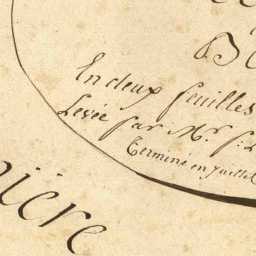 En deux feuilles
Levée par Mr. f:
Terminé en Juillet
nière